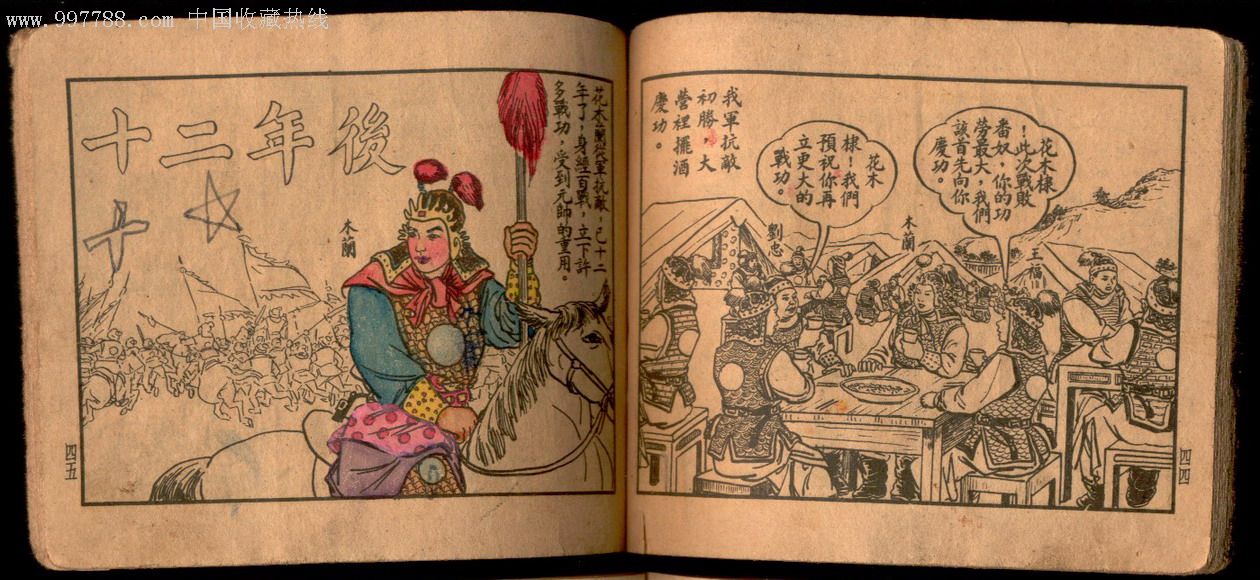 www.997788.com 中国收藏热线
我軍抗敵
初勝，大
營裡擺酒
慶功。
花木棣
！此次戰敗
番奴，你的功
勞最大，我們
該首先向你
慶功。
花木
棣！我們
預祝你再
立更大的
戰功。
王福
木蘭
劉忠
四四
十二年後
花木蘭從軍抗敵，已十二
年了，身經百戰，立下許
多戰功，受到元帥的重用。
木蘭
十
四五